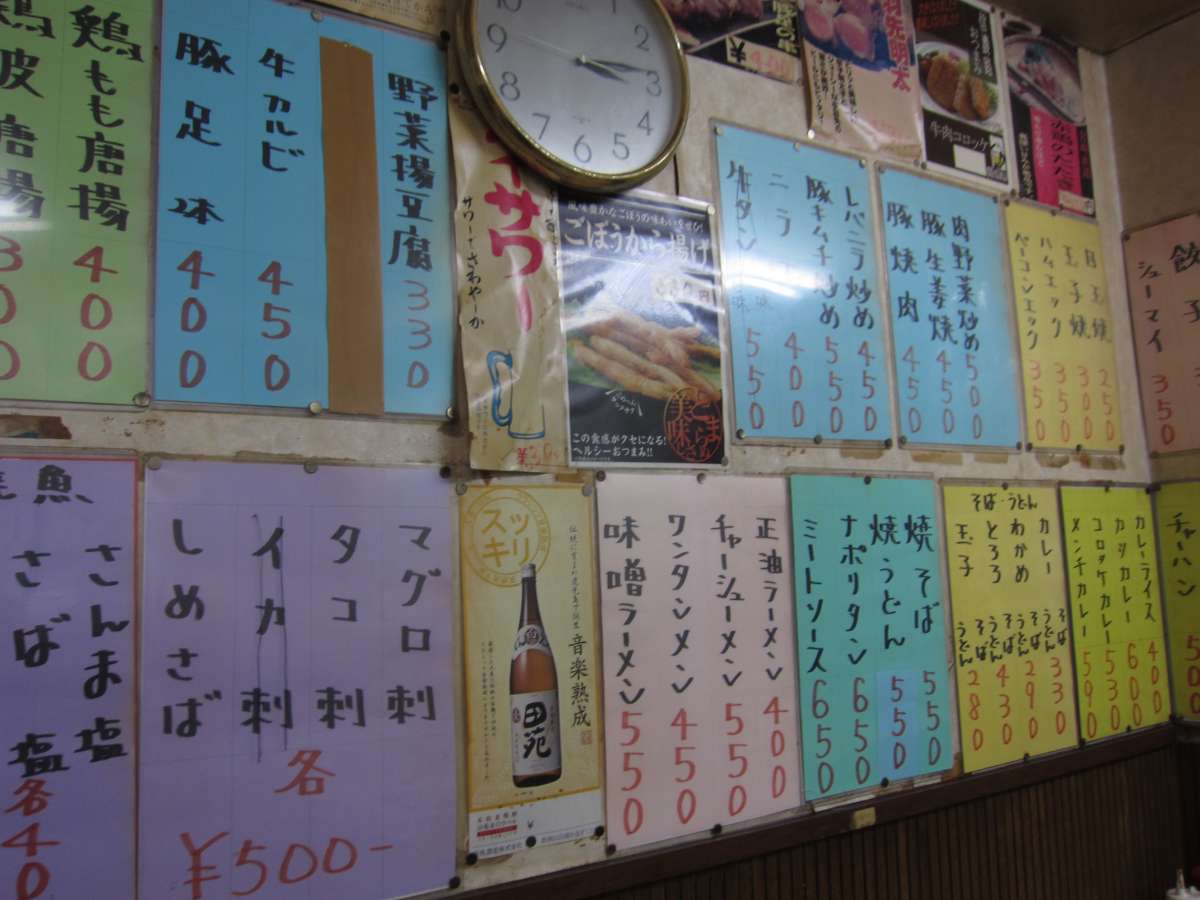 鶏もも唐揚 400
牛カルビ 450
豚足 2本 400
野菜揚豆腐 330
サワー
サワーでさわやか
10
1
2
9
3
8
4
7
6
5
ごぼうから揚げ
この食感がクセになる!
ヘルシーおつまみ!!
¥400
明太
牛肉コロッケ
レバニラ炒め 450
豚キムチ炒め 550
ニラ 400
牛タン 550
肉野菜炒め 500
豚生姜焼 450
豚焼肉 450
目玉焼 250
玉子焼 300
ハムエッグ 350
ベーコンエッグ 350
餃子
シューマイ 350
魚
さんま塩
さば塩
各40
マグロ刺
タコ刺
イカ刺
しめさば
各
¥500-
スッキリ
音楽熟成
田苑
正油ラーメン 400
チャーシューメン 550
ワンタンメン 450
味噌ラーメン 550
焼そば 550
焼うどん 550
ナポリタン 650
ミートソース 650
そば・うどん
カレー そば うどん 330
わかめ そば うどん 290
とろろ そば うどん 430
玉子 そば うどん 280
カレーライス 400
カツカレー 600
コロッケカレー 530
メンチカレー 590
チャーハン 500